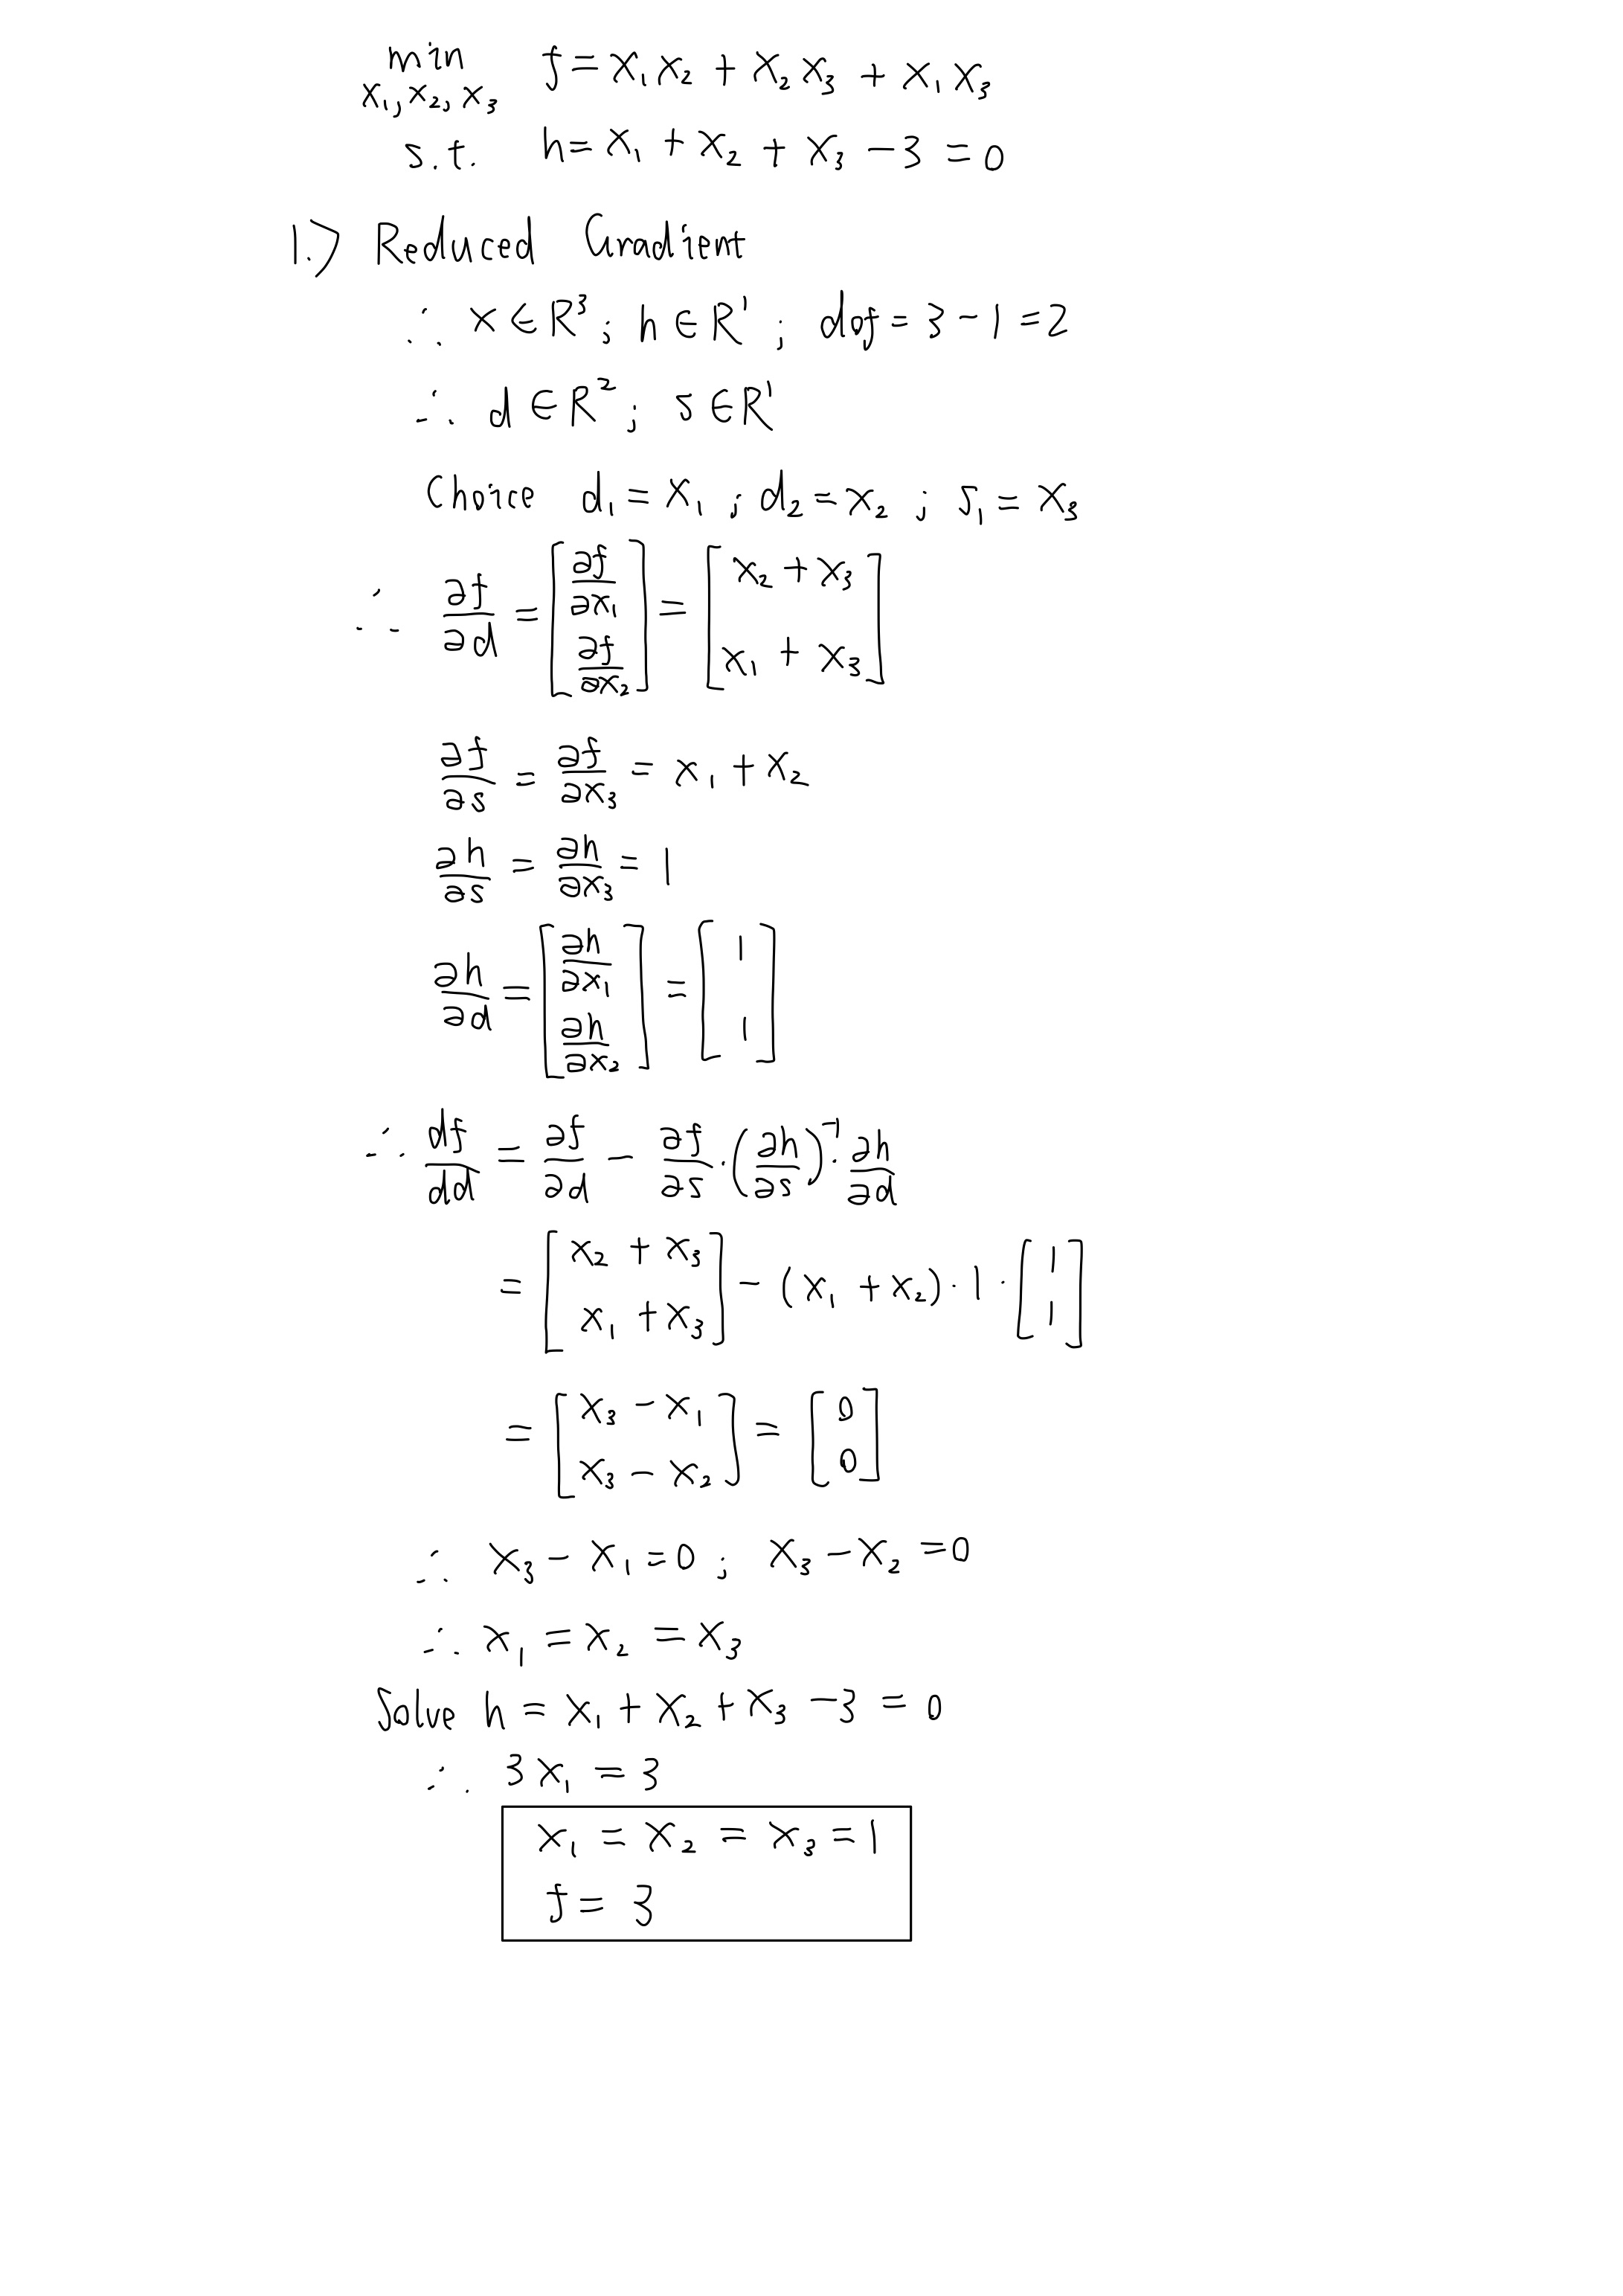 min f = x₁x₂ + x₂x₃ + x₁x₃
x₁, x₂, x₃
s.t. h = x₁ + x₂ + x₃ − 3 = 0
1.> Reduced Gradient
∵ x ∈ R³; h ∈ R¹; dof = 3 − 1 = 2
∴ d ∈ R²; s ∈ R¹
Choice d₁ = x₁; d₂ = x₂; s₁ = x₃
∴ ∂f/∂d = [∂f/∂x₁; ∂f/∂x₂] = [x₂ + x₃; x₁ + x₃]
∂f/∂s = ∂f/∂x₃ = x₁ + x₂
∂h/∂s = ∂h/∂x₃ = 1
∂h/∂d = [∂h/∂x₁; ∂h/∂x₂] = [1; 1]
∴ df/dd = ∂f/∂d − ∂f/∂s · (∂h/∂s)⁻¹ · ∂h/∂d
= [x₂ + x₃; x₁ + x₃] − (x₁ + x₂) · 1 · [1; 1]
= [x₃ − x₁; x₃ − x₂] = [0; 0]
∴ x₃ − x₁ = 0; x₃ − x₂ = 0
∴ x₁ = x₂ = x₃
Solve h = x₁ + x₂ + x₃ − 3 = 0
∴ 3x₁ = 3
x₁ = x₂ = x₃ = 1
f = 3